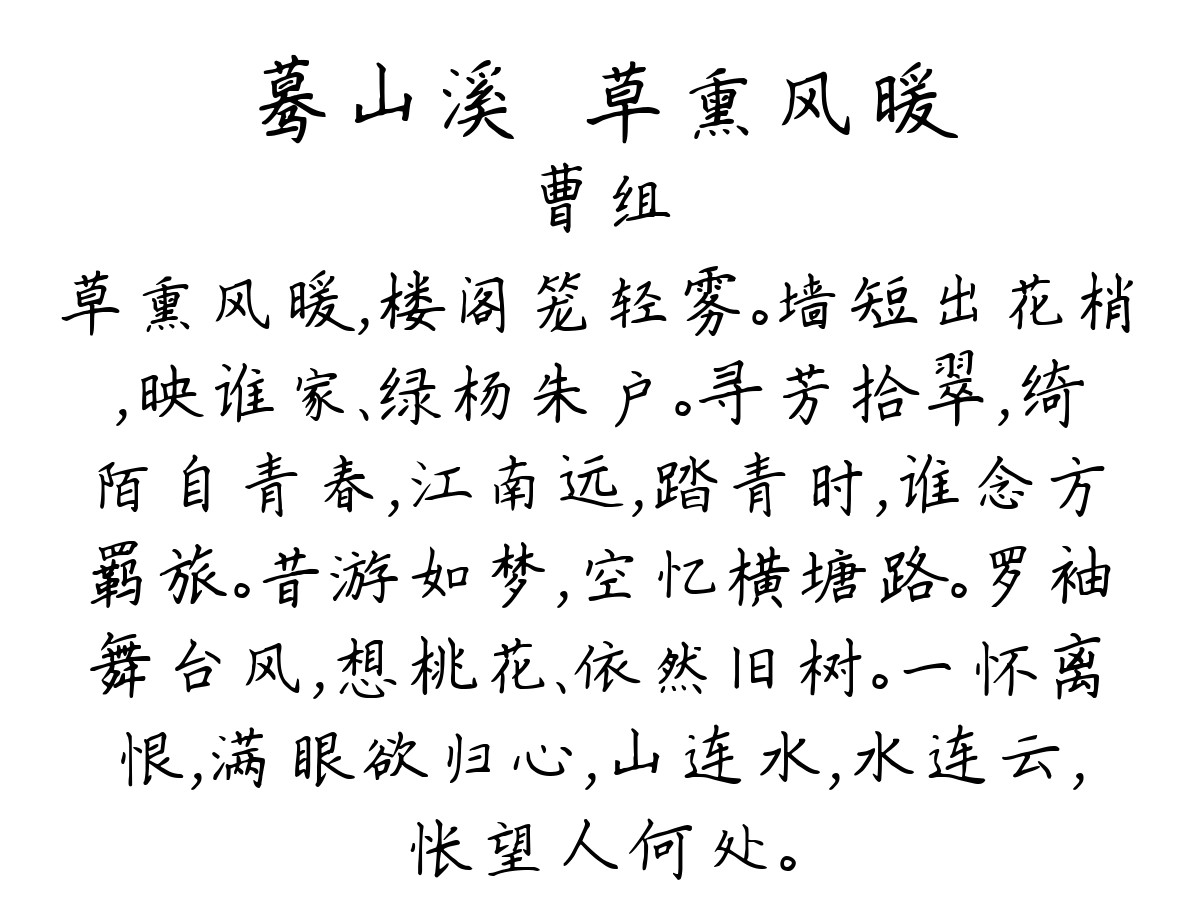 蓦山溪 草熏风暖
曹组
草熏风暖,楼阁笼轻雾。墙短出花梢
,映谁家、绿杨朱户。寻芳拾翠,绮
陌自青春,江南远,踏青时,谁念方
羁旅。昔游如梦,空忆横塘路。罗袖
舞台风,想桃花、依然旧树。一怀离
恨,满眼欲归心,山连水,水连云,
怅望人何处。